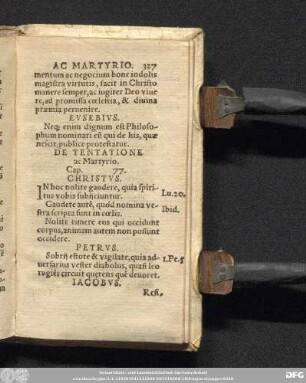 AC MARTYRIO. 327
mentum ac negocium bone indolis
magistra virtutis, facit in Christo
manere semper, ac iugiter Deo viue
re, ad promissa cœlestia, & diuina
præmia peruenire.
EVSEBIVS.
Neq; enim dignum est Philoso-
phum nominari eū qui de his, quæ
nescit, publice protestatur.
DE TENTATIONE
ac Martyrio.
Cap. 77.
CHRISTVS.
IN hoc nolite gaudere, quia spiri- Lu.20.
tus vobis subijciuntur.
Gaudete autē, quòd nomina ve- Ibid.
stra scripta sunt in cœlis.
Nolite timere eos qui occidunt
corpus, animam autem non possunt
occidere.
PETRVS.
Sobrij estote & vigilate, quia ad- 1.Pe.5
uersarius vester diabolus, quasi leo
rugiēs circuit quærens quē deuoret.
IACOBVS.
Resi-
DFG